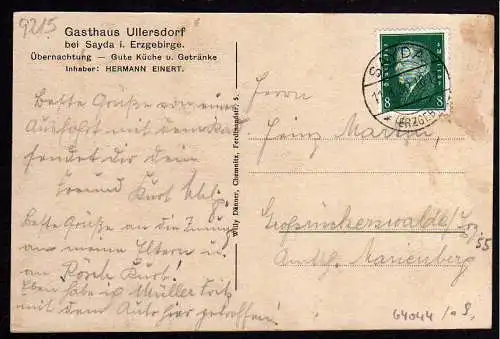 9215
Gasthaus Ullersdorf
bei Sayda i. Erzgebirge.
Übernachtung — Gute Küche u. Getränke
Inhaber: HERMANN EINERT.
Beste Grüße von einer
Ausfahrt mit dem
sendet dir dein
Freund Kurt
Beste Grüße an die
an meine Eltern u.
an Kurt!
Eben habe ich Müller Fritz
mit dem Auto hier getroffen!
Willy Dänner, Chemnitz, Ferdinandstr. 5.
SAYDA
(ERZGEB.)
8 8
Herrn
Heinz
Großrückerswalde
55
Amtsh. Marienberg
64044